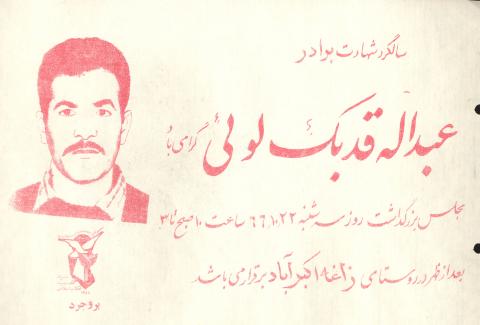 سالگرد شهادت برادر
عبداله قدبک لوئی گرامی باد
مجلس بزرگداشت روز سه شنبه ۶۶٫۱۰٫۲۲ ساعت ۱۰ صبح تا ۳
بعد از ظهر در روستای زاغه اکبرآباد برقرار می باشد
بروجرد